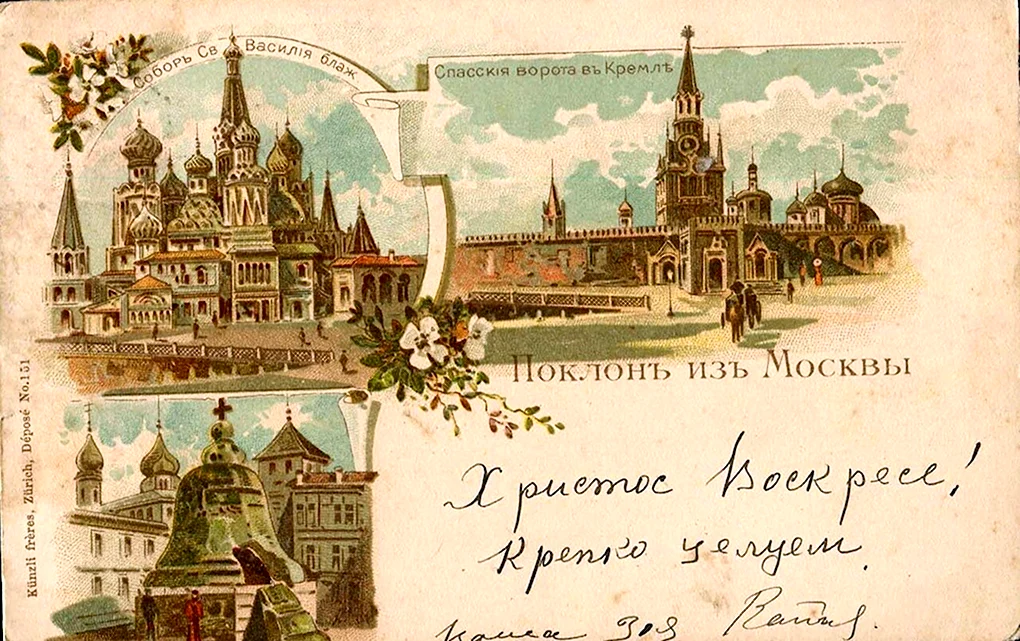 Соборъ Св Василія блаж
Спасскія ворота въ Кремлѣ
Поклонъ изъ Москвы
Христос Воскресе!
Крепко целуем
Зоя
Künzli frères, Zürich, Déposé No.151